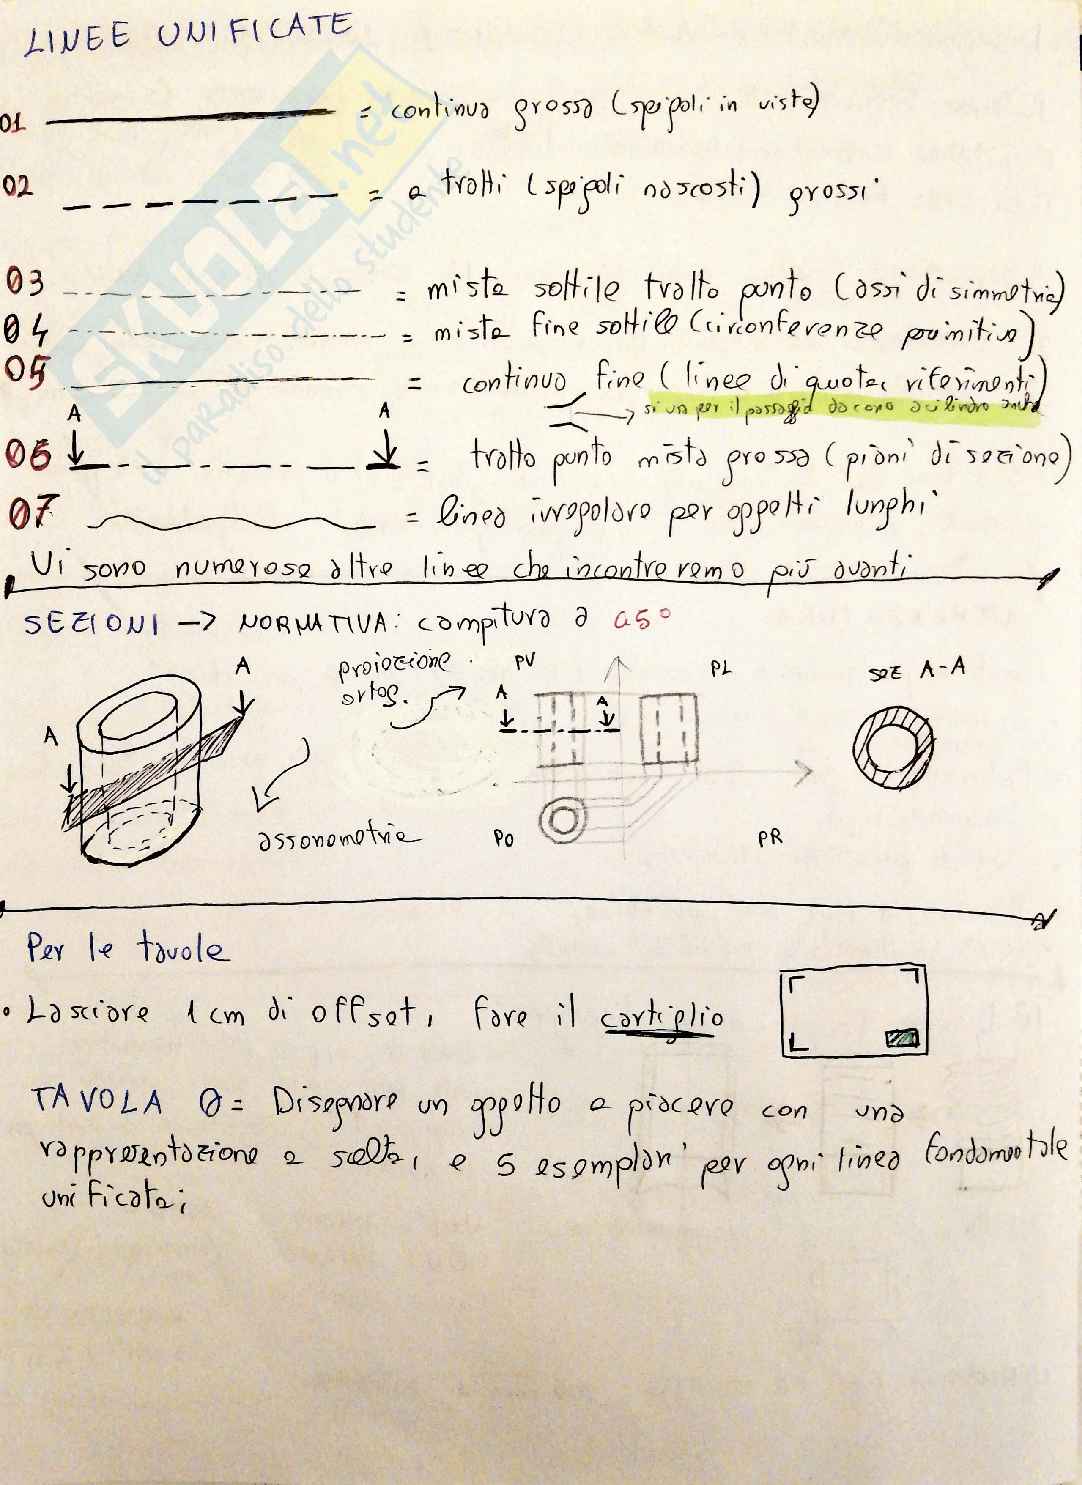 LINEE UNIFICATE
01 = continua grossa (spigoli in vista)
02 = a tratti (spigoli nascosti) grossi
03 = mista sottile tratto punto (assi di simmetria)
04 = mista fine sottile (circonferenze primitive)
05 = continua fine (linee di quota, riferimenti)
si usa per il passaggio da cono a cilindro anche
A A
06 = tratto punto mista grossa (piani di sezione)
07 = linea irregolare per oggetti lunghi
Vi sono numerose altre linee che incontreremo più avanti
SEZIONI → NORMATIVA: campitura a 45°
A A
assonometria
proiezione ortog.
PV PL
A A
PO PR
SEZ A-A
Per le tavole
• Lasciare 1 cm di offset, fare il cartiglio
TAVOLA 0 = Disegnare un oggetto a piacere con una
rappresentazione a scelta, e 5 esemplari per ogni linea fondamentale
unificata;
SKUOLA.net
il paradiso dello studente